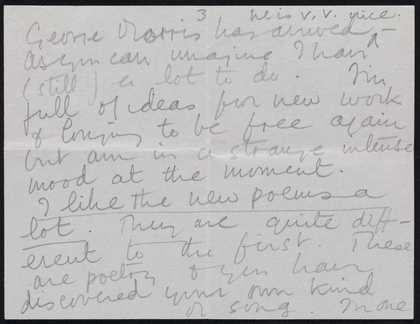 3 He is v. v. nice.
George Morris has arrived ^
As you can imagine I have
(still) a lot to do. I'm
full of ideas for new work
& longing to be free again
but am in a strange intense
mood at the moment.
I like the new poems a
lot. They are quite diff-
erent to the first. These
are poetry & you have
discovered your own kind
of song. More